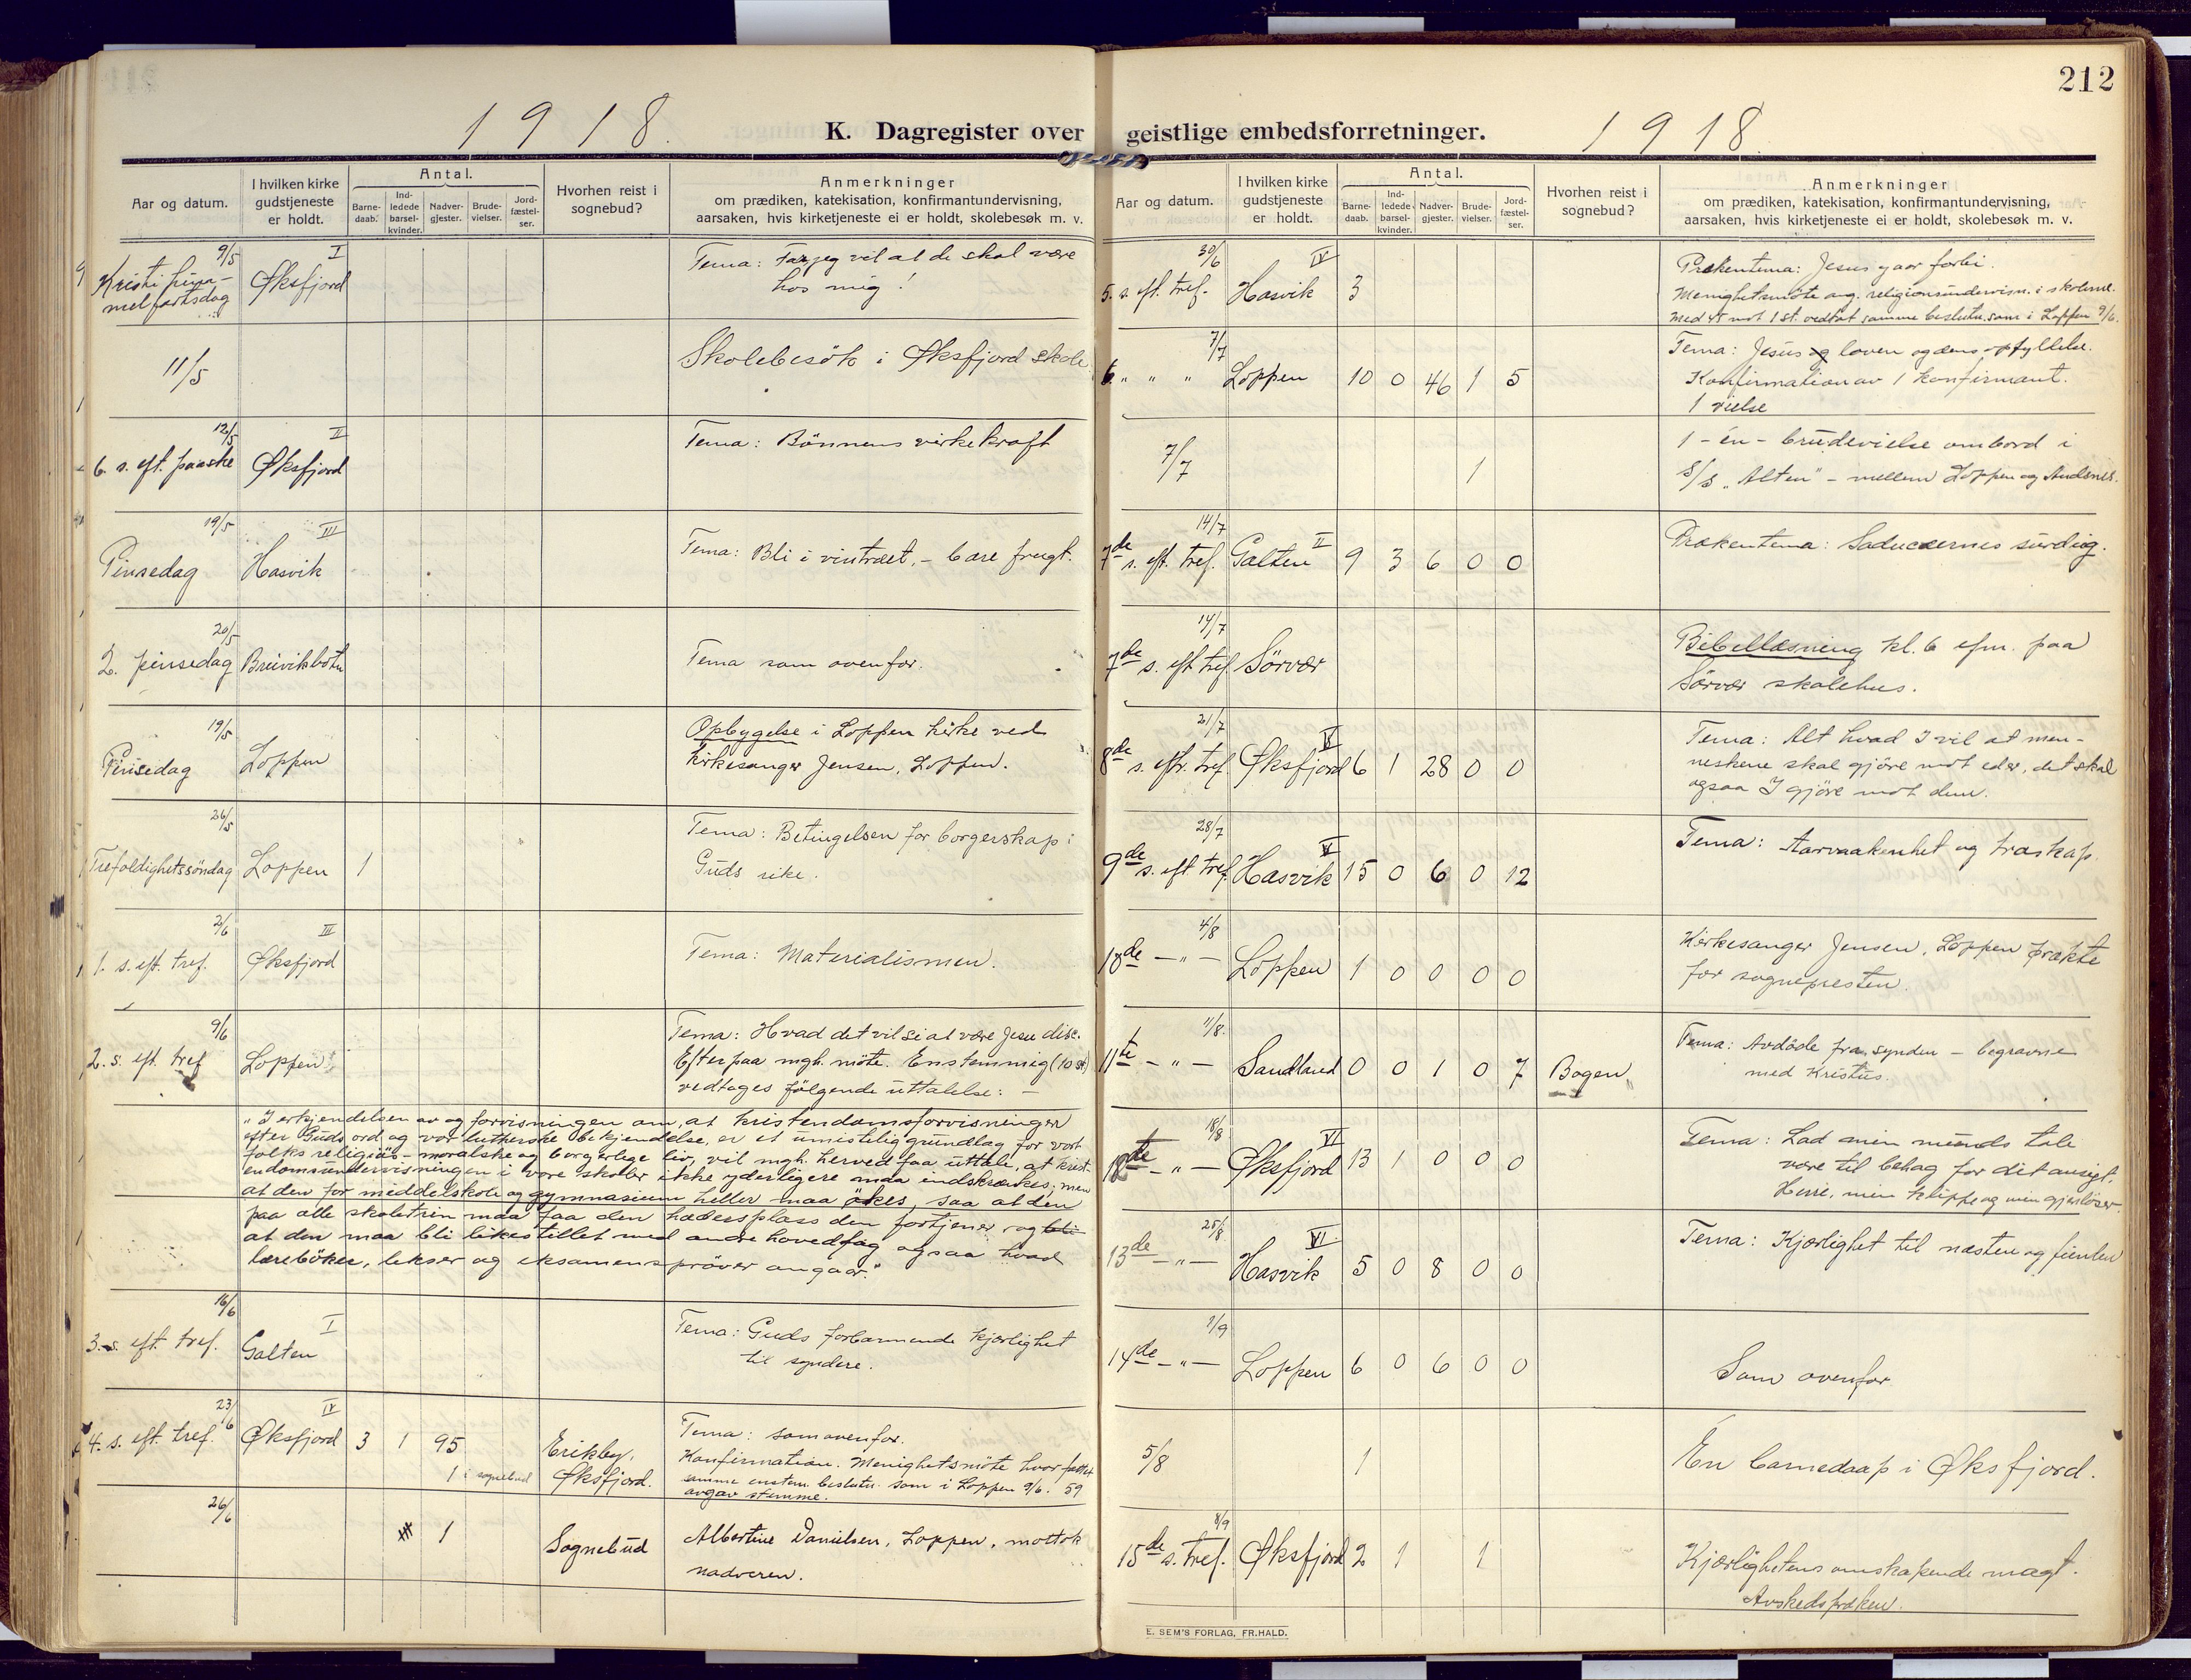 212
1918.
K. Dagregister over
Aar og datum.
I hvilken kirke gudstjeneste er holdt.
Antal.
Barne-daab.
Ind-ledede barsel-kvinder.
Nadver-gjester.
Brude-vielser.
Jord-fæstel-ser.
Hvorhen reist i sognebud?
Anmerkninger
om prædiken, katekisation, konfirmantundervisning,
aarsaken, hvis kirketjeneste ei er holdt, skolebesøk m. v.
9/5 I
Kristi him- Øksfjord Tema: Far jeg vil at de skal være
melfartsdag hos mig!
11/5 Skolebesök i Øksfjord skole.
12/5 II
6. s. eft. paaske Øksfjord Tema: Bönnens virkekraft
19/5 III
Pinsedag Hasvik Tema: Bli i vintræet, – bære frugt.
20/5
2. pinsedag Breivikbotn Tema som ovenfor.
19/5
Pinsedag Loppen Opbygelse i Loppen kirke ved
kirkesanger Jensen, Loppen.
26/5
Trefoldighetssöndag Loppen 1 Tema: Betingelsen for borgerskap i
Guds rike.
2/6 III
1. s. eft. tref. Øksfjord Tema: Materialismen.
9/6
2. s. eft. tref Loppen Tema: Hvad det vil si at være Jesu disc.
Efterpaa mgh. möte. Enstemmig (10 st)
vedtages fölgende uttalelse: –
"I erkjendelsen av og forvisningen om, at kristendomsforvisningen
efter Guds ord og vor lutherske bekjendelse, er et umistelig grundlag for vort
folks religiös-moralske og borgerlige liv, vil mgh. herved faa uttale, at krist-
endomsundervisningen i vore skoler ikke yderligere maa indskrænkes; men
at den for middelskole og gymnasium heller maa ökes, saa at den
paa alle skoletrin maa faa den hædersplass den fortjener og bli
at den maa bli likestillet med andre hovedfag ogsaa hvad
lærebøker, lekser og eksamenspröver angaar."
16/6 I
3. s. eft. tref. Galten Tema: Guds forbarmende kjærlighet
til syndere.
23/6 IV
4. s. eft. tref. Øksfjord 3 1 95 Erikby, Tema: som ovenfor.
1 i sognebud Øksfjord. Konfirmation. Menighetsmöte hvor fattet
samme enstem. beslutn. som i Loppen 9/6. 59
avgav stemme.
26/6
1 Sognebud Albertine Danielsen, Loppen, mottok
nadveren.
geistlige embedsforretninger.
1918.
Aar og datum.
I hvilken kirke gudstjeneste er holdt.
Antal.
Barne-daab.
Ind-ledede barsel-kvinder.
Nadver-gjester.
Brude-vielser.
Jord-fæstel-ser.
Hvorhen reist i sognebud?
Anmerkninger
om prædiken, katekisation, konfirmantundervisning,
aarsaken, hvis kirketjeneste ei er holdt, skolebesøk m. v.
30/6 IV
5. s. eft. tref. Hasvik 3 Prekentema: Jesus gaar forbi.
Menighetsmöte ang. religionsundervisn. i skolerne.
Med 45 mot 1 st. vedtat samme beslutn. som i Loppen 9/6.
7/7
6. " " " Loppen 10 0 46 1 5 Tema: Jesus og loven og dens opfyllelse.
Konfirmation av 1 konfirmant.
1 vielse
7/7 1 1 – én – brudevielse ombord i
S/S "Alten" – mellem Loppen og Andsnes.
14/7 II
7de s. eft. tref. Galten 9 3 6 0 0 Prækentema: Saducæernes surdeig.
14/7
7de s. eft tref. Sörvær Bibellæsning kl. 6 efm. paa
Sörvær skolehus.
21/7 V
8de s. eftr. tref. Øksfjord 6 1 28 0 0 Tema: Alt hvad I vil at men-
neskene skal gjöre mot eder, det skal
ogsaa I gjöre mot dem.
28/7 V
9de s. eft tref. Hasvik 15 0 6 0 12 Tema: Aarvaakenhet og troskap.
4/8
10de – " – Loppen 1 0 0 0 0 Kirkesanger Jensen, Loppen prækte
for sognepresten.
11/8.
11te – " – Sandland 0 0 1 0 7 Bogen Tema: Avdöde fra synden – begravne
med Kristus.
18/8 VI
12te – " – Øksfjord 13 1 0 0 0 Tema: Lad min munds tale
være til behag for dit ansigt,
Herre, min klippe og min gjenlöser.
25/8 VI
13de – " – Hasvik 5 0 8 0 0 Tema: Kjærlighet til næsten og fienden
1/9
14de – " – Loppen 6 0 6 0 0 Som ovenfor
5/8 1 Én barnedaap i Øksfjord.
8/9
15de s. tref. Øksfjord 2 1 1 Kjærlighetens omskapende magt.
Avskedspræken.
E. SEM'S FORLAG, FR.HALD.